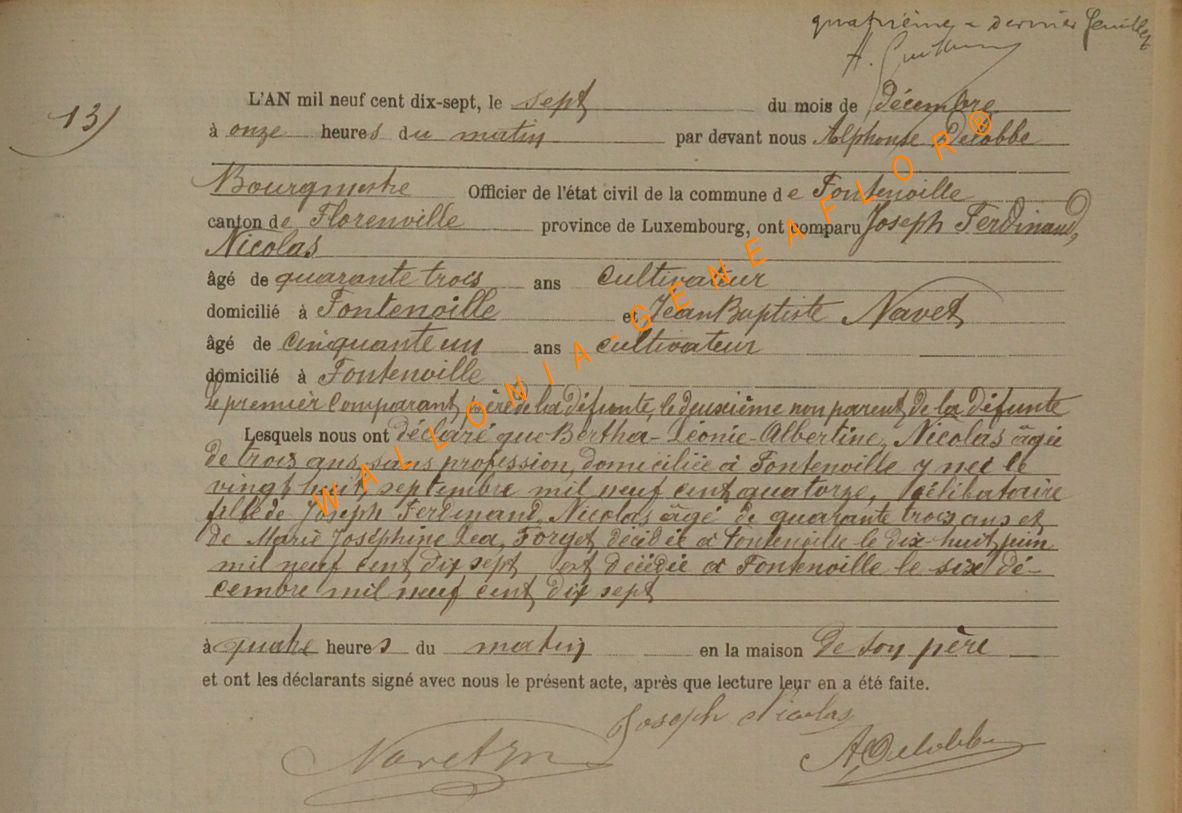 quatrième & dernier feuillet
A.
13)
L'AN mil neuf cent dix-sept, le sept du mois de décembre
à onze heures du matin par devant nous Alphonse Delobbe
Bourgmestre Officier de l'état civil de la commune de Fontenoille
canton de Florenville province de Luxembourg, ont comparu Joseph Ferdinand,
Nicolas
âgé de quarante trois ans cultivateur
domicilié à Fontenoille et Jean Baptiste Navet
âgé de cinquante un ans cultivateur
domicilié à Fontenoille
le premièr comparant père de la défunte, le deuxième non parent de la défunte
Lesquels nous ont déclaré que Bertha-Léonie-Albertine, Nicolas âgée
de trois ans, sans profession, domiciliée à Fontenoille y née le
vingt huit, septembre mil neuf cent quatorze, célibataire
fille de Joseph Ferdinand, Nicolas âgé de quarante trois ans et
de Marie Joséphine Léa, Forget, décédée à Fontenoille le dix-huit juin
mil neuf cent dix sept est décédée à Fontenoille le six dé-
cembre mil neuf cent dix sept
à quatre heures du matin en la maison de son père
et ont les déclarants signé avec nous le présent acte, après que lecture leur en a été faite.
Joseph Nicolas
Navet A Delobbe
WALLONIA-GENEAFLOR®